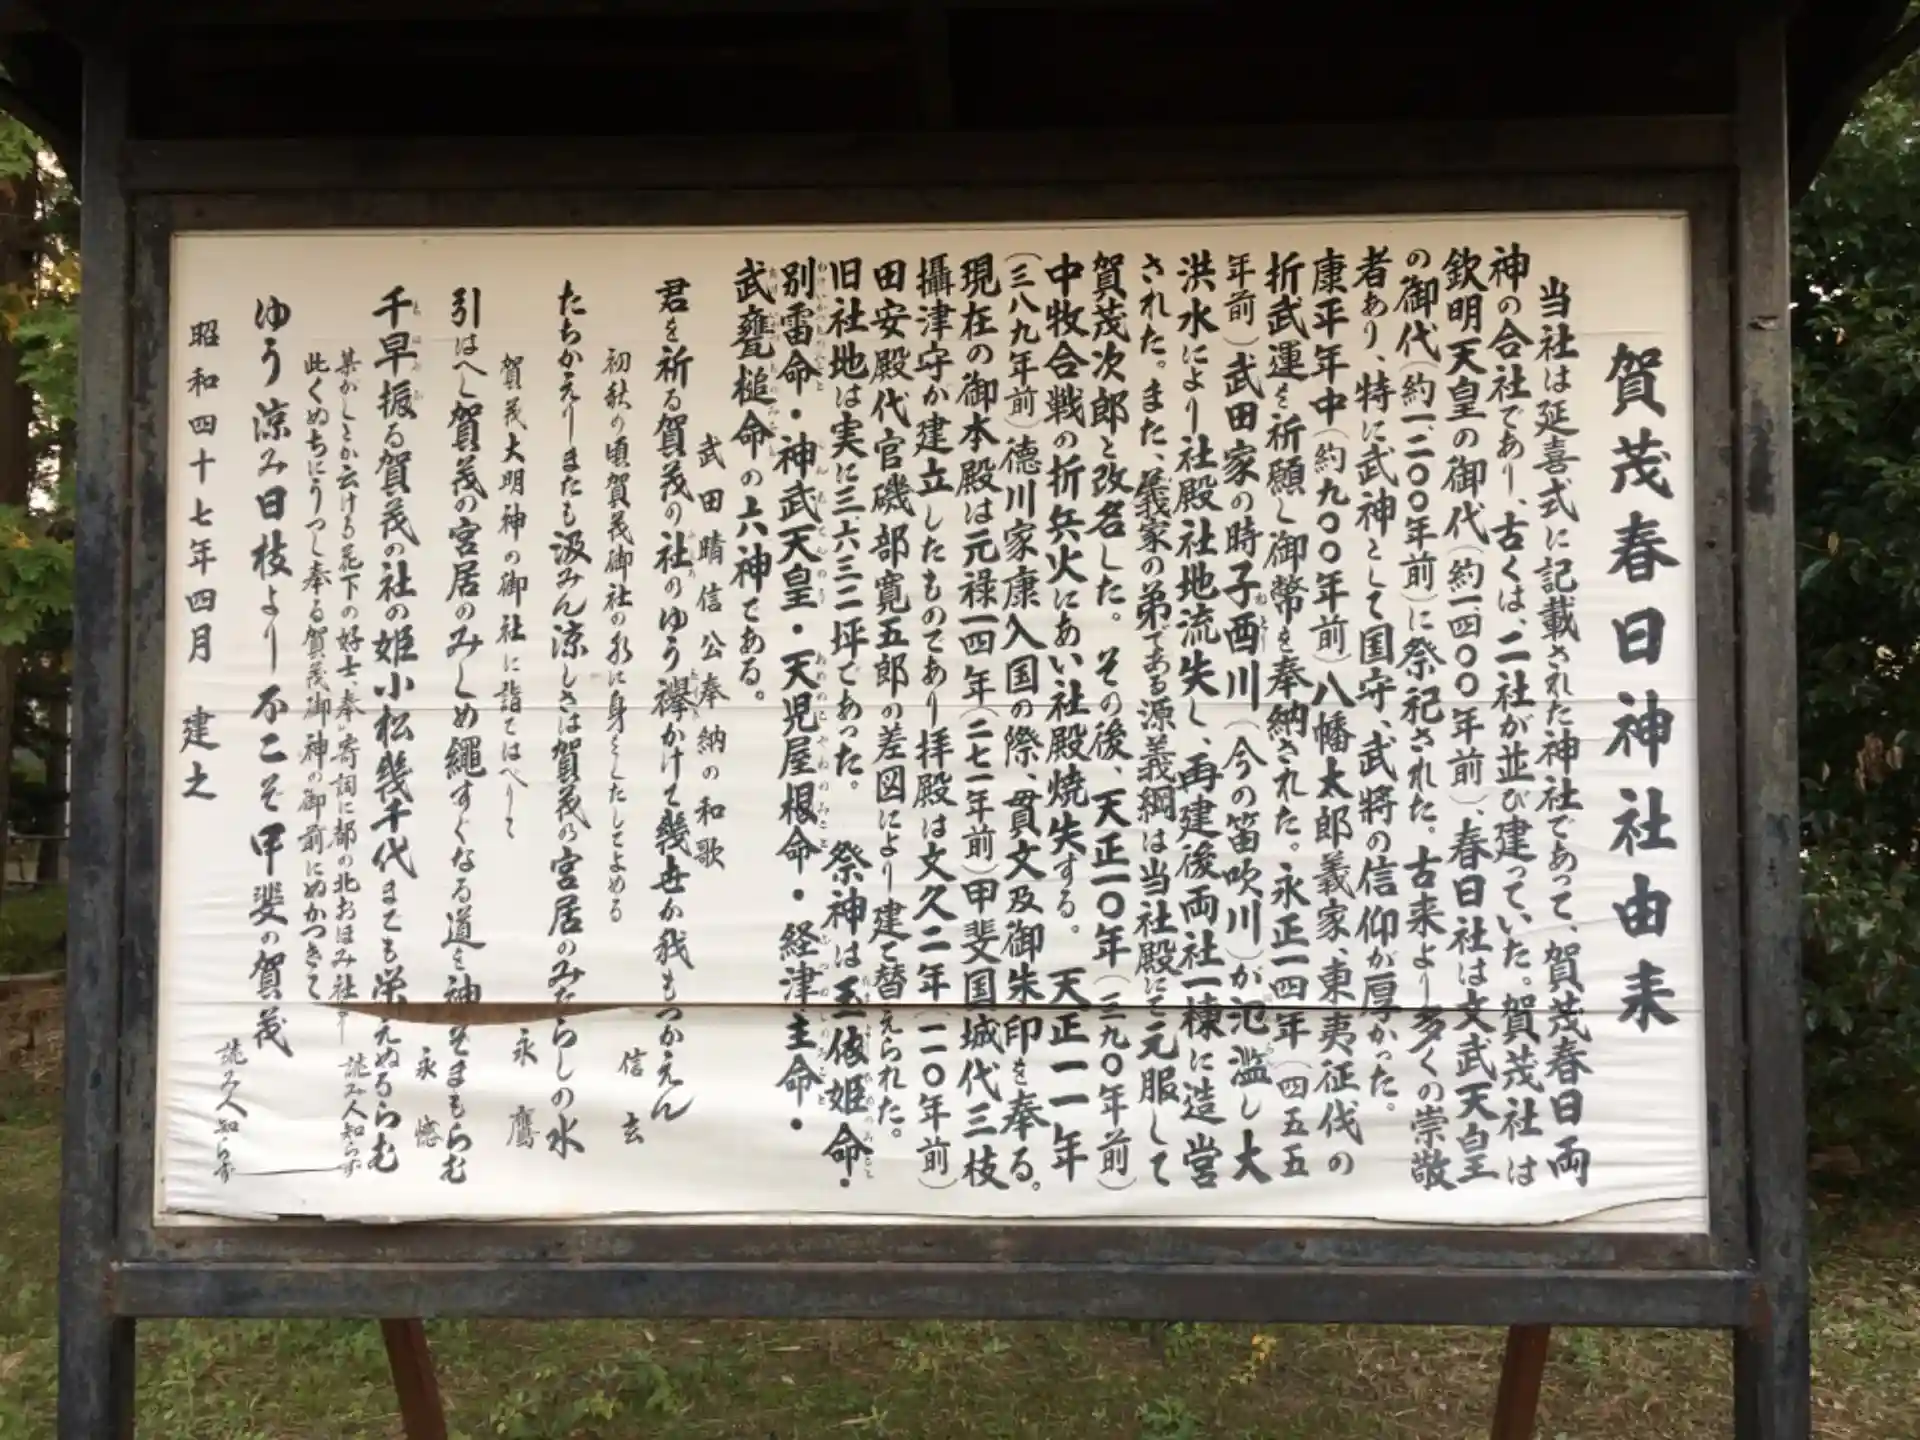 賀茂春日神社由来
当社は延喜式に記載された神社であって、賀茂春日両
神の合社であり、古くは、二社が並び建っていた。賀茂社は
欽明天皇の御代(約一、四〇〇年前)、春日社は文武天皇
の御代(約一、二〇〇年前)に祭祀された。古来より多くの崇敬
者あり、特に武神として国守、武将の信仰が厚かった。
康平年中(約九〇〇年前)八幡太郎義家、東夷征伐の
折武運を祈願し御幣を奉納された。永正一四年(四五五
年前)武田家の時子酉川(今の笛吹川)が氾濫し大
洪水により社殿社地流失し、再建後両社一棟に造営
された。また、義家の弟である源義綱は当社殿にて元服して
賀茂次郎と改名した。その後、天正一〇年(三九〇年前)
中牧合戦の折兵火にあい社殿焼失する。天正一一年
(三八九年前)徳川家康入国の際、貫文及御朱印を奉る。
現在の御本殿は元禄一四年(二七一年前)甲斐国城代三枝
攝津守が建立したものであり拝殿は文久二年(一一〇年前)
田安殿代官磯部寛五郎の差図により建て替えられた。
旧社地は実に三、六三二坪であった。祭神は玉依姫命・
別雷命・神武天皇・天児屋根命・経津主命・
武甕槌命の六神である。
武田晴信公奉納の和歌
君を祈る賀茂の社のゆう襷かけて幾世か我もつかえん
信玄
初秋の頃賀茂御社の水に身をしたしてよめる
たちかえりまたも汲みん涼しさは賀茂の宮居のみたらしの水
永鷹
賀茂大明神の御社に詣てはへりて
引はへし賀茂の宮居のみしめ縄すぐなる道を神そまもらむ
永
千早振る賀茂の社の姫小松幾千代までも栄えぬるらむ
読み人知らず
某がしとか云ける花下の好士、奉り寄詞に都の北おほみ社を
此くぬちにうつし奉る賀茂御神の御前にぬかつきて
ゆう涼み日枝より不こそ甲斐の賀茂
読み人知らず
昭和四十七年四月 建之